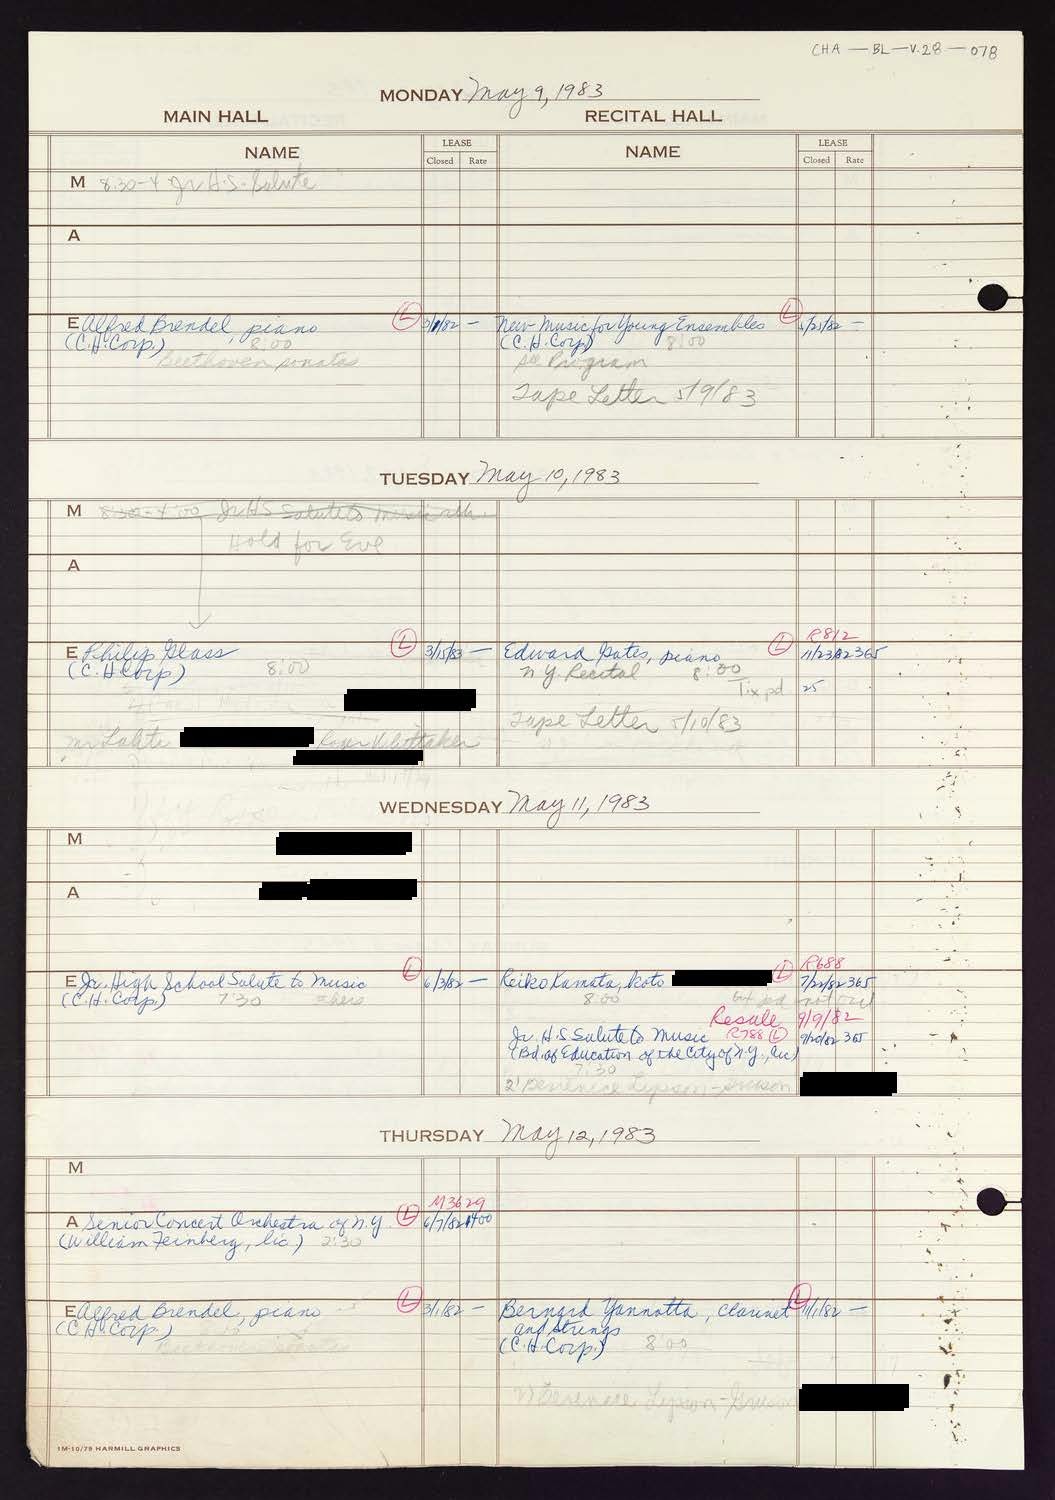 CHA — BL — V.28 — 078
MONDAY May 9, 1983
MAIN HALL RECITAL HALL
NAME LEASE Closed Rate NAME LEASE Closed Rate
M 8:30-4 Jr H.S. Salute
A
E Alfred Brendel, piano L 3/1/82 — New Music for Young Ensembles L 5/21/82 —
(C.H. Corp.) 8:00 (C.H. Corp) 8:00
Beethoven sonatas see Program
Tape Letter 5/9/83
TUESDAY May 10, 1983
M 8:30-4:00 Jr HS Salute to Music
Hold for Eve
A
R812
E Philip Glass L 3/15/83 — Edward Gates, piano L 11/23/82 365
(C.H. Corp) 8:00 N.Y. Recital 8:00
Tix pd. 25
Tape Letter 5/10/83
Mr Labite Roger Whittaker
WEDNESDAY May 11, 1983
M
A
R688
E Jr. High School Salute to Music L 6/3/82 — Reiko Kamata, koto L 7/22/82 365
(C.H. Corp.) 7:30 8:00 but did not
Resale 9/9/82
Jr. H.S Salute to Music R788 L 9/20/82 365
(Bd. of Education of the City of N.Y., lic)
7:30
2' Berenice Lipson-Gruson
THURSDAY May 12, 1983
M
M3629
A Senior Concert Orchestra of N.Y L 6/7/82 1400
(William Feinberg, lic.) 2:30
E Alfred Brendel, piano L 3/1/82 — Bernard Yannotta, clarinet L 11/1/82 —
(C.H. Corp.) and strings
Beethoven sonatas (C.H. Corp.) 8:00
Berenice Lipson-Gruson
1M-10/79 HARMILL GRAPHICS